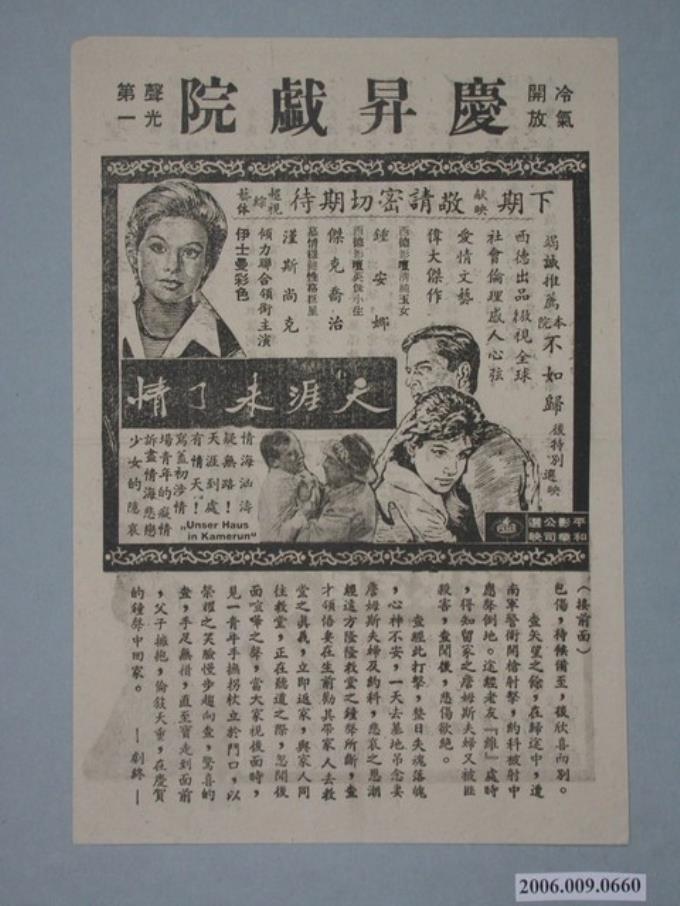 冷氣
開放
慶昇戲院
聲光
第一
下期
獻映
敬請密切期待
超視
綜
藝体
竭誠推薦
本院
不如歸
後特別選映
西德出品徹視全球
社會倫理感人心弦
愛情文藝
偉大傑作
西德影壇清純玉女
鍾安娜
西德影壇英俊小生
傑克喬治
漢斯尚克
傾力聯合領銜主演
伊士曼彩色
天涯未了情
情海汹濤
疑無路！
天涯到處
有情天！
寫盡初涉情
場青年的癡情
訴盡情海悲戀
少女的隱哀
„Unser Haus
in Kamerun“
平和
影業
公司
選映
（接前面）
包傷，待候備至，後欣喜而別。
查失望之餘，在歸途中，遭
南軍警衛開槍射擊，約科被射中
應聲倒地。途經老友『維』處時
，得知留家之詹姆斯夫婦又被匪
殺害，查聞後，悲傷欲絕。
查經此打擊，整日失魂落魄
，心神不安，一天去墓地吊念妻
詹姆斯夫婦及約科，悲哀之思潮
經遠方隆隆教堂之鐘聲所斷，查
才領悟妻在生前勸其帶家人去教
堂之眞義，立即返家，與家人同
往教堂，正在聽道之際，忽聞後
面喧嘩之聲，當大家視後面時，
見一青年手撫拐杖立於門口，以
榮耀之笑臉慢步趨向查，驚喜的
查，手足無措，直至寶走到面前
，父子擁抱，倫敍天重，在慶賀
的鐘聲中回家。
—劇終—
2006.009.0660